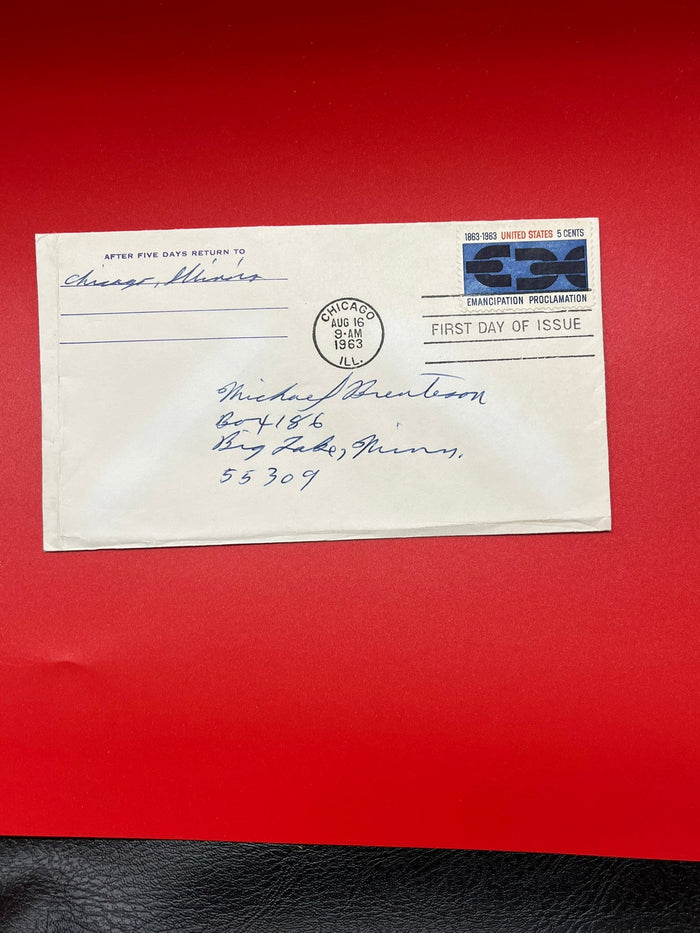 AFTER FIVE DAYS RETURN TO
Chicago, Illinois
1863-1963 UNITED STATES 5 CENTS
EMANCIPATION PROCLAMATION
CHICAGO
AUG 16
9-AM
1963
ILL.
FIRST DAY OF ISSUE
Michael
Box 186
Big Lake, Minn.
55309